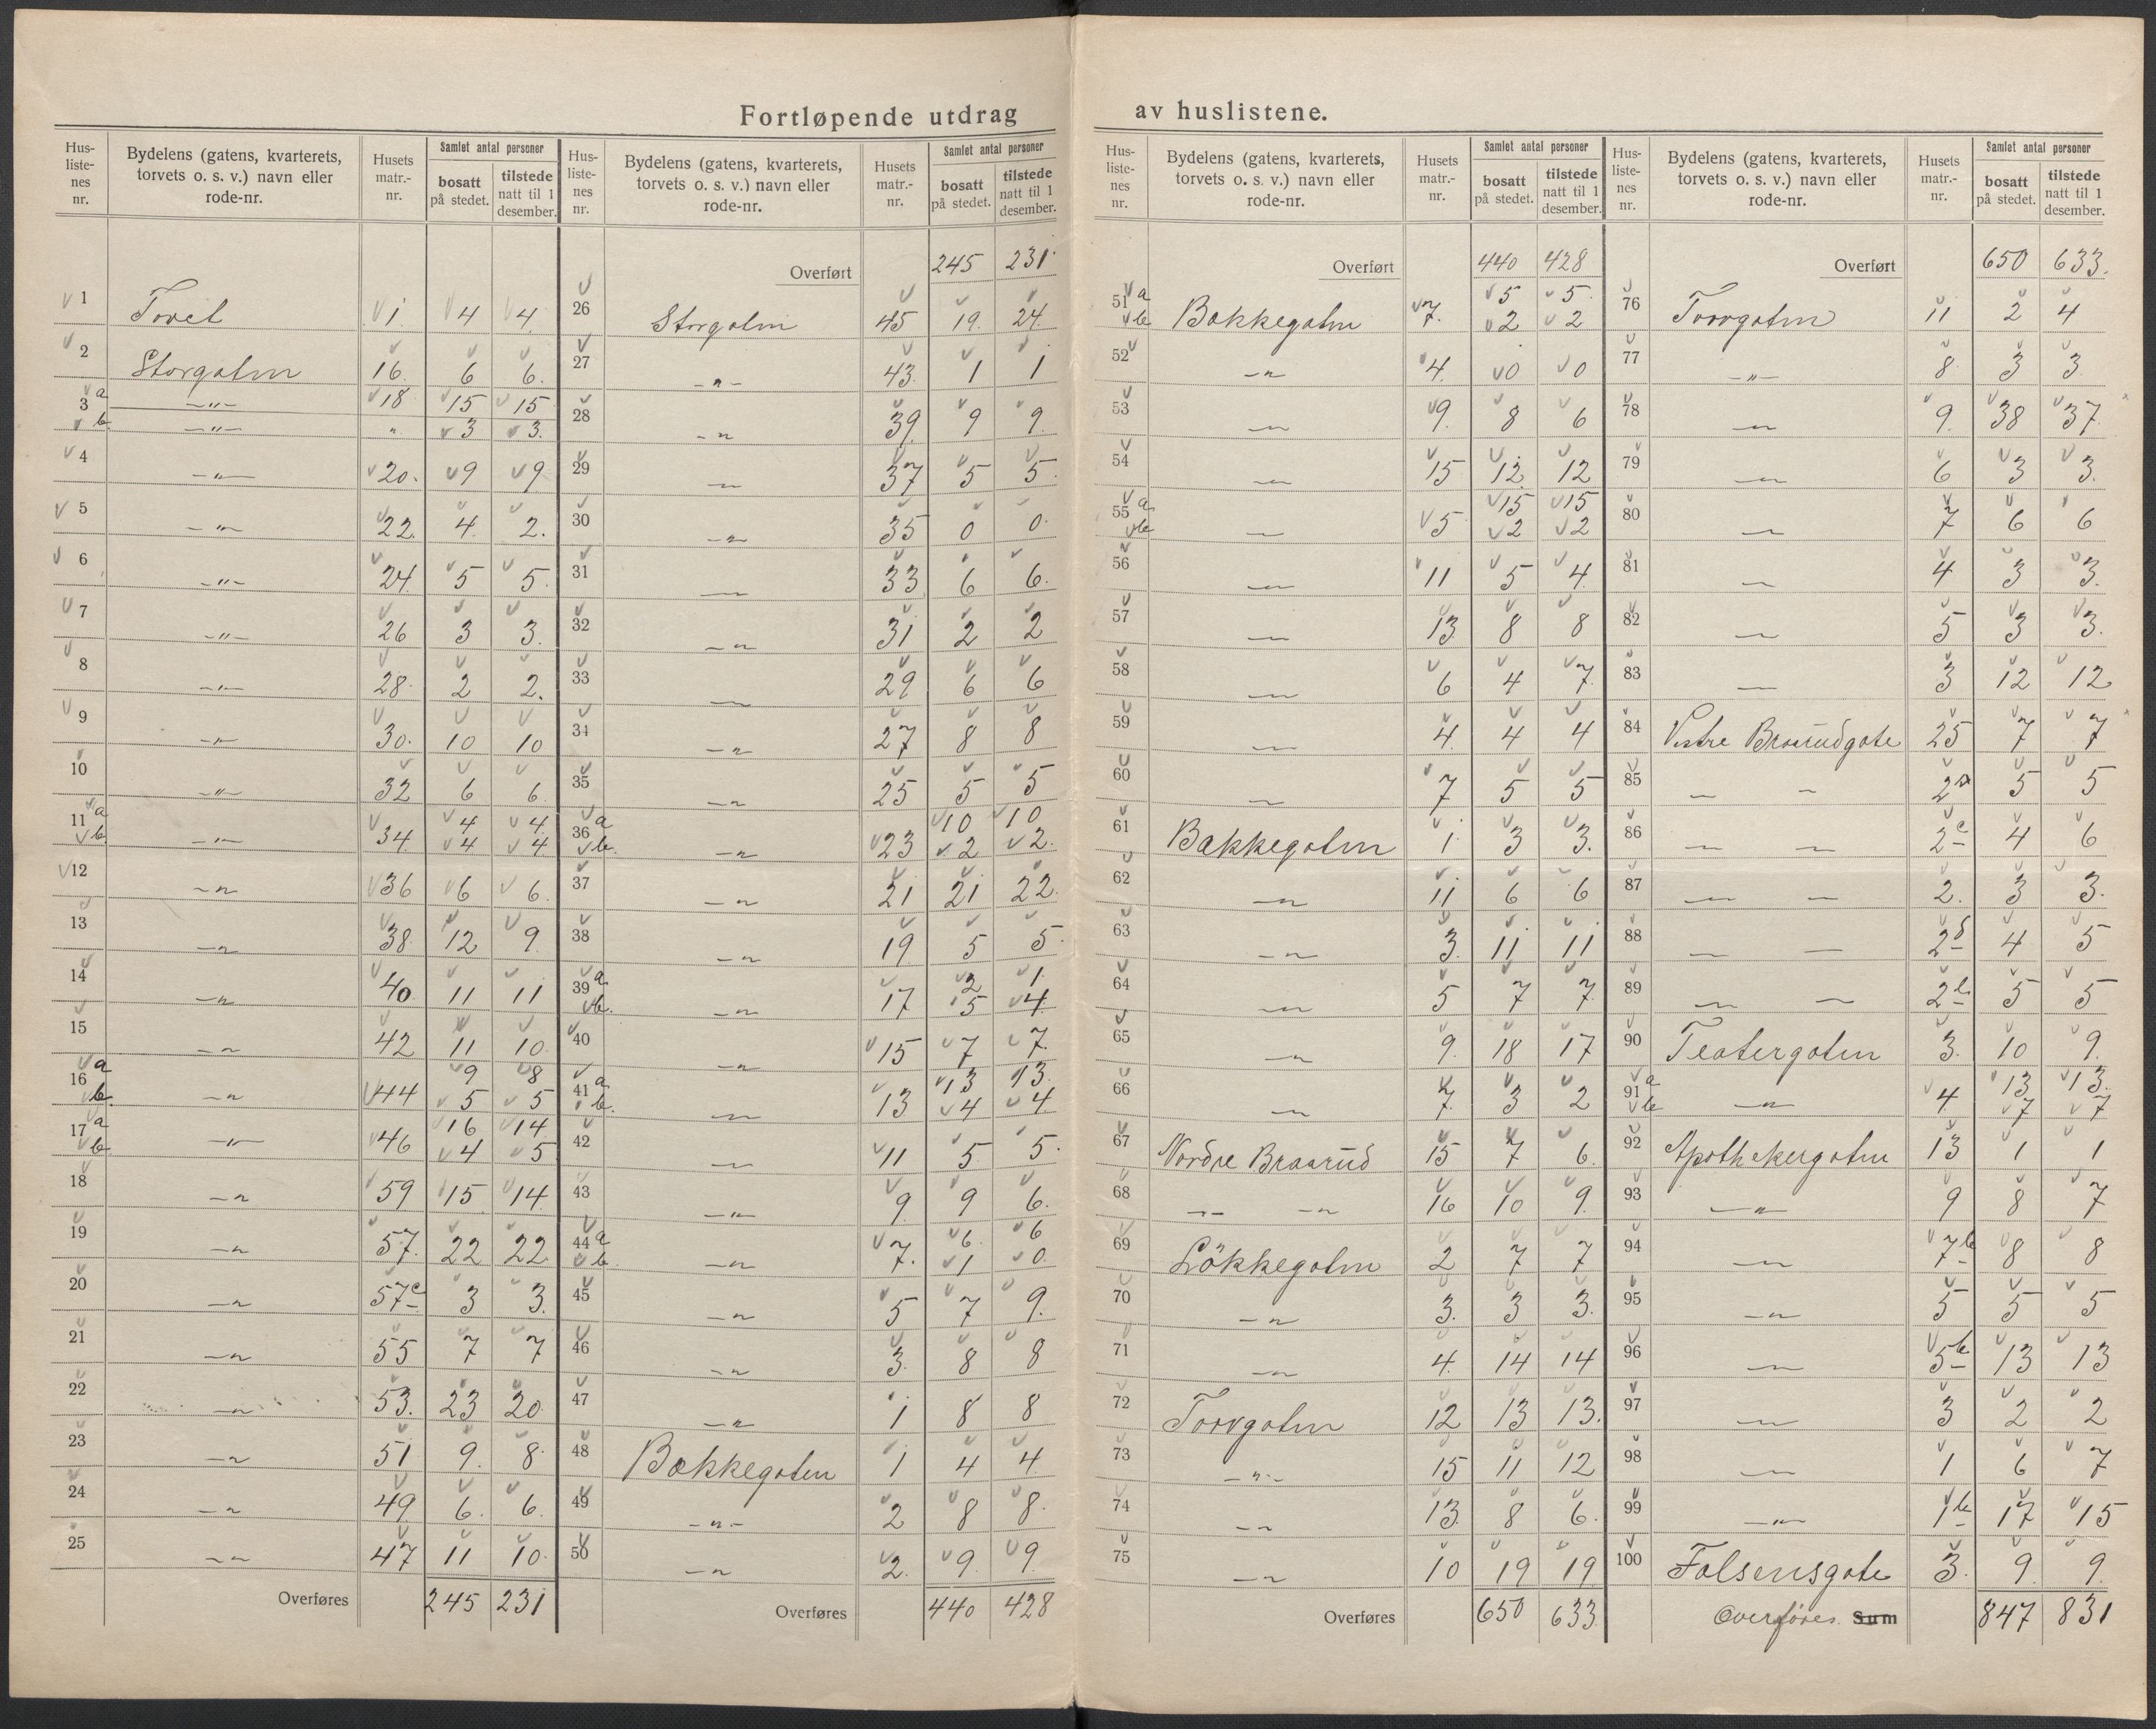 Fortløpende utdrag av huslistene.
Hus-listenes nr. | Bydelens (gatens, kvarterets, torvets o. s. v.) navn eller rode-nr. | Husets matr.-nr. | Samlet antal personer | bosatt på stedet. | tilstede natt til 1 desember.
1 Torvet 1 4 4
2 Storgaten 16 6 6
3 a —"— 18 15 15
b —"— " 3 3
4 —"— 20 9 9
5 —"— 22 4 2
6 —"— 24 5 5
7 —"— 26 3 3
8 —"— 28 2 2
9 —"— 30 10 10
10 —"— 32 6 6
11 a —"— 34 4 4
b 4 4
12 —"— 36 6 6
13 —"— 38 12 9
14 —"— 40 11 11
15 —"— 42 11 10
16 a —"— 44 9 8
b 5 5
17 a —"— 46 16 14
b 4 5
18 —"— 59 15 14
19 —"— 57 22 22
20 —"— 57c 3 3
21 —"— 55 7 7
22 —"— 53 23 20
23 —"— 51 9 8
24 —"— 49 6 6
25 —"— 47 11 10
Overføres 245 231
Hus-listenes nr. | Bydelens (gatens, kvarterets, torvets o. s. v.) navn eller rode-nr. | Husets matr.-nr. | Samlet antal personer | bosatt på stedet. | tilstede natt til 1 desember.
Overført 245 231
26 Storgaten 45 19 24
27 —"— 43 1 1
28 —"— 39 9 9
29 —"— 37 5 5
30 —"— 35 0 0
31 —"— 33 6 6
32 —"— 31 2 2
33 —"— 29 6 6
34 —"— 27 8 8
35 —"— 25 5 5
36 a —"— 23 10 10
b 2 2
37 —"— 21 21 22
38 —"— 19 5 5
39 a —"— 17 2 1
b 5 4
40 —"— 15 7 7
41 a —"— 13 13 13
b 4 4
42 —"— 11 5 5
43 —"— 9 9 6
44 a —"— 7 6 6
b 1 0
45 —"— 5 7 9
46 —"— 3 8 8
47 —"— 1 8 8
48 Bakkegaten 1 4 4
49 —"— 2 8 8
50 —"— 2 9 9
Overføres 440 428
Hus-listenes nr. | Bydelens (gatens, kvarterets, torvets o. s. v.) navn eller rode-nr. | Husets matr.-nr. | Samlet antal personer | bosatt på stedet. | tilstede natt til 1 desember.
Overført 440 428
51 a Bakkegaten 7 5 5
b 2 2
52 —"— 4 0 0
53 —"— 9 8 6
54 —"— 15 12 12
55 a —"— 5 15 15
b 2 2
56 —"— 11 5 4
57 —"— 13 8 8
58 —"— 6 4 7
59 —"— 4 4 4
60 —"— 7 5 5
61 Bakkegaten 1 3 3
62 —"— 11 6 6
63 —"— 3 11 11
64 —"— 5 7 7
65 —"— 9 18 17
66 —"— 7 3 2
67 Nordre Braarud 15 7 6
68 —"— —"— 16 10 9
69 Løkkegaten 2 7 7
70 —"— 3 3 3
71 —"— 4 14 14
72 Torvgaten 12 13 13
73 —"— 15 11 12
74 —"— 13 8 6
75 —"— 10 19 19
Overføres 650 633
Hus-listenes nr. | Bydelens (gatens, kvarterets, torvets o. s. v.) navn eller rode-nr. | Husets matr.-nr. | Samlet antal personer | bosatt på stedet. | tilstede natt til 1 desember.
Overført 650 633
76 Torvgaten 11 2 4
77 —"— 8 3 3
78 —"— 9 38 37
79 —"— 6 3 3
80 —"— 7 6 6
81 —"— 4 3 3
82 —"— 5 3 3
83 —"— 3 12 12
84 Vestre Braarudgate 25 7 7
85 — — 2a 5 5
86 — — 2c 4 6
87 — — 2 3 3
88 — — 2d 4 5
89 — — 2b 5 5
90 Teatergaten 3 10 9
91 a —"— 4 13 13
b 7 7
92 Apothekergaten 13 1 1
93 —"— 9 8 7
94 —"— 7b 8 8
95 —"— 5 5 5
96 —"— 5b 13 13
97 —"— 3 2 2
98 —"— 1 6 7
99 —"— 1b 17 15
100 Falsensgate 3 9 9
Overføres Sum 847 831